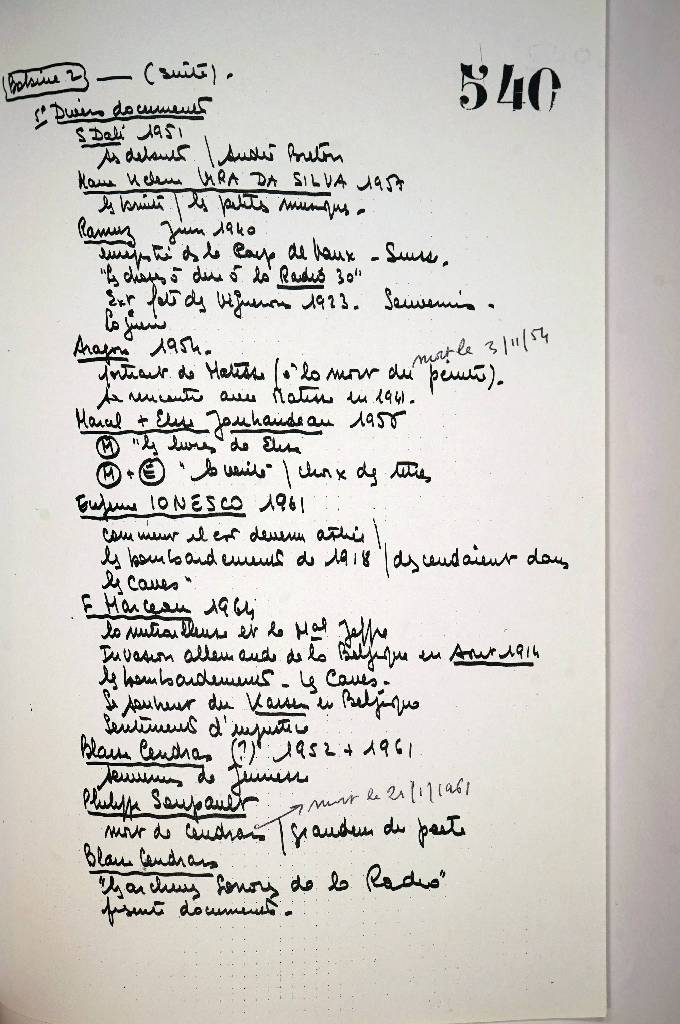 Bobine 2 — (suite).
540
5° Divers documents
S Dali 1951
ses debuts / André Breton
VIERA DA SILVA 1957
les bruits / les petites musiques.
Ramuz Juin 1940
enregistré ds le Corps de Vaux - Suisse.
"Les choses à dire à la Radio 30"
Ext fête des Vignerons 1923. Souvenirs.
La guerre
Aragon 1954.
mort le 3/11/54
portrait de Matisse (à la mort du peintre).
sa rencontre avec Matisse en 1941.
Marcel + Elise Jouhandeau 1955
(M) "les livres de Elise
(M) + (E) " la vérité" / choix des titres
Eugène IONESCO 1961
comment il est devenu
les bombardements de 1918 / descendaient dans
les Caves"
F Marceau 1964
la mitrailleuse et le Mal Joffre
Invasion allemande de la Belgique en Aout 1914
les bombardements - les Caves -
en Belgique
Sentiments d'injustice
Blaise Cendrars (?) 1952 + 1961
souvenirs de Jeunesse
Philippe Soupault
mort le 21/1/1961
mort de Cendrars / grandeur du poete
Blaise Cendrars
"les archives Sonores de la Radio"
présente documents.